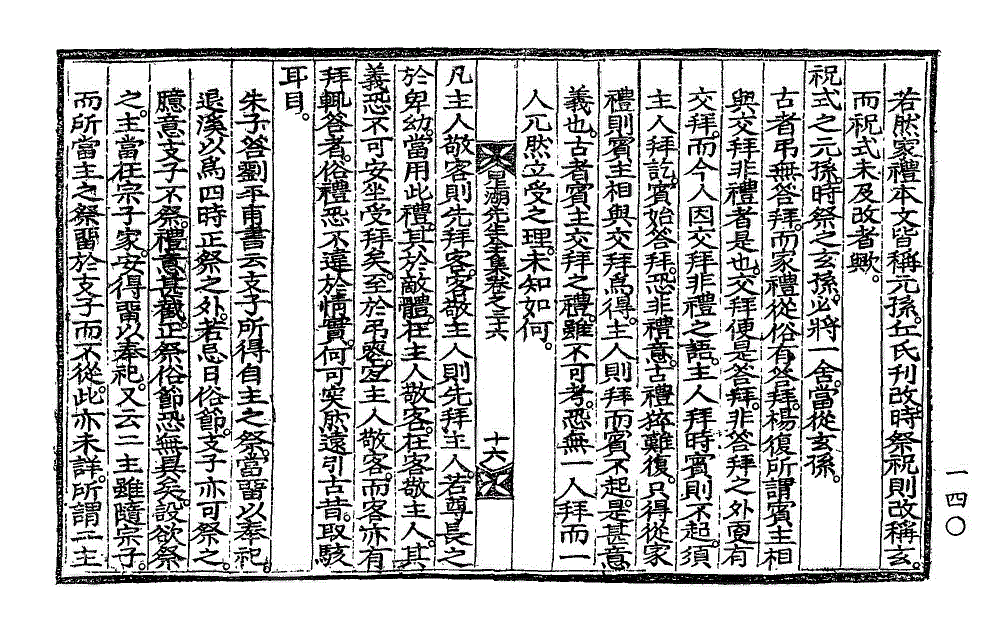 若然家禮本文皆稱元孫。丘氏刊改時祭祝則改稱玄。
而祝式未及改者歟。
祝式之元孫時祭之玄孫。必將一舍。當從玄孫。
古者弔無答拜。而家禮從俗有答拜。楊復所謂賓主相
與交拜非禮者是也。交拜便是答拜。非答拜之外更有
交拜。而今人因交拜非禮之語。主人拜時賓則不起。須
主人拜訖。賓始答拜。恐非禮意。古禮猝難復。只得從家
禮則賓主相與交拜爲得。主人則拜而賓不起。是甚意
義也。古者賓主交拜之禮。雖不可考。恐無一人拜而一
人兀然立受之理。未知如何。
星湖先生全集卷之三十六
十六
凡主人敬客則先拜客。客敬主人則先拜主人。若尊長之
於卑幼。當用此禮。其於敵體。在主人敬客。在客敬主人。其
義恐不可安坐受拜矣。至於弔喪。宜主人敬客。而客亦有
拜輒答者。俗禮恐不違於情實。何可突然遠引古昔。取駭
耳目。
朱子答劉平甫書云支子所得自主之祭。當留以奉祀。
退溪以爲四時正祭之外。若忌日俗節。支子亦可祭之。
臆意支子不祭。禮意甚截。正祭俗節恐無異矣。設欲祭
之。主當在宗子家。安得留以奉祀。又云二主雖隨宗子。
而所當主之祭留於支子而不從。此亦未詳。所謂二主
一四〇